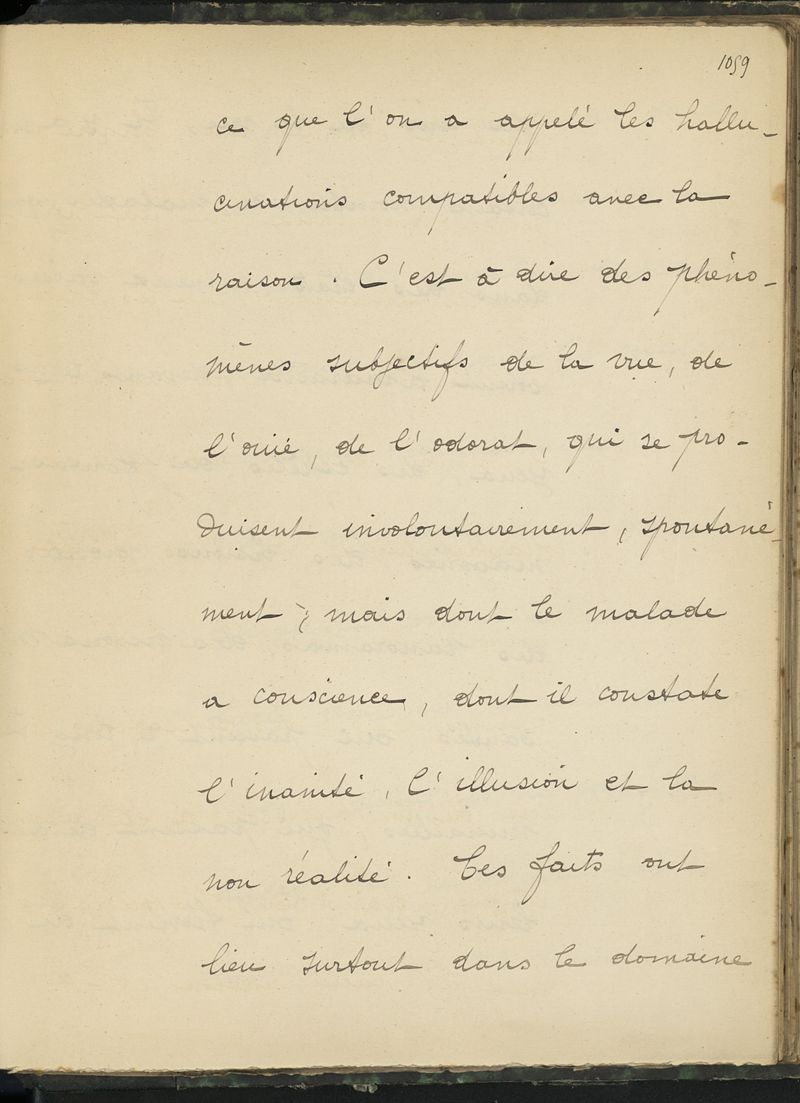 1059
ce que l'on a appelé les hallu-
cinations compatibles avec la
raison. C'est à dire des phéno-
mènes subjectifs de la vue, de
l'ouïe, de l'odorat, qui se pro-
duisent involontairement, spontané-
ment ; mais dont le malade
a conscience, dont il constate
l'inanité, l'illusion et la
non réalité. Ces faits ont
lieu surtout dans le domaine